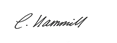 C. Hammill